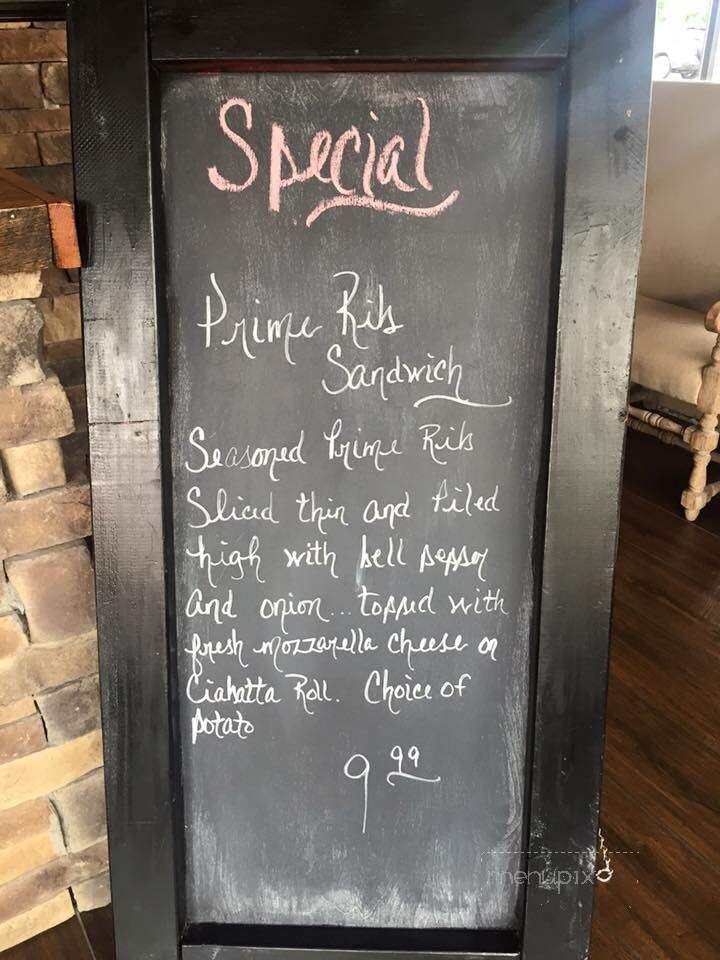 Special
Prime Rib
Sandwich
Seasoned Prime Rib
Sliced thin and Piled
high with bell pepper
and onion... topped with
fresh mozzarella cheese on
Ciabatta Roll. Choice of
potato
9 99
menupix